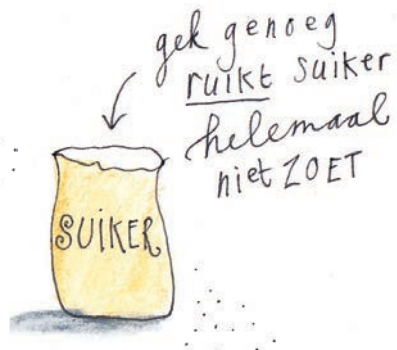 gek genoeg
ruikt suiker
helemaal
niet ZOET
SUIKER